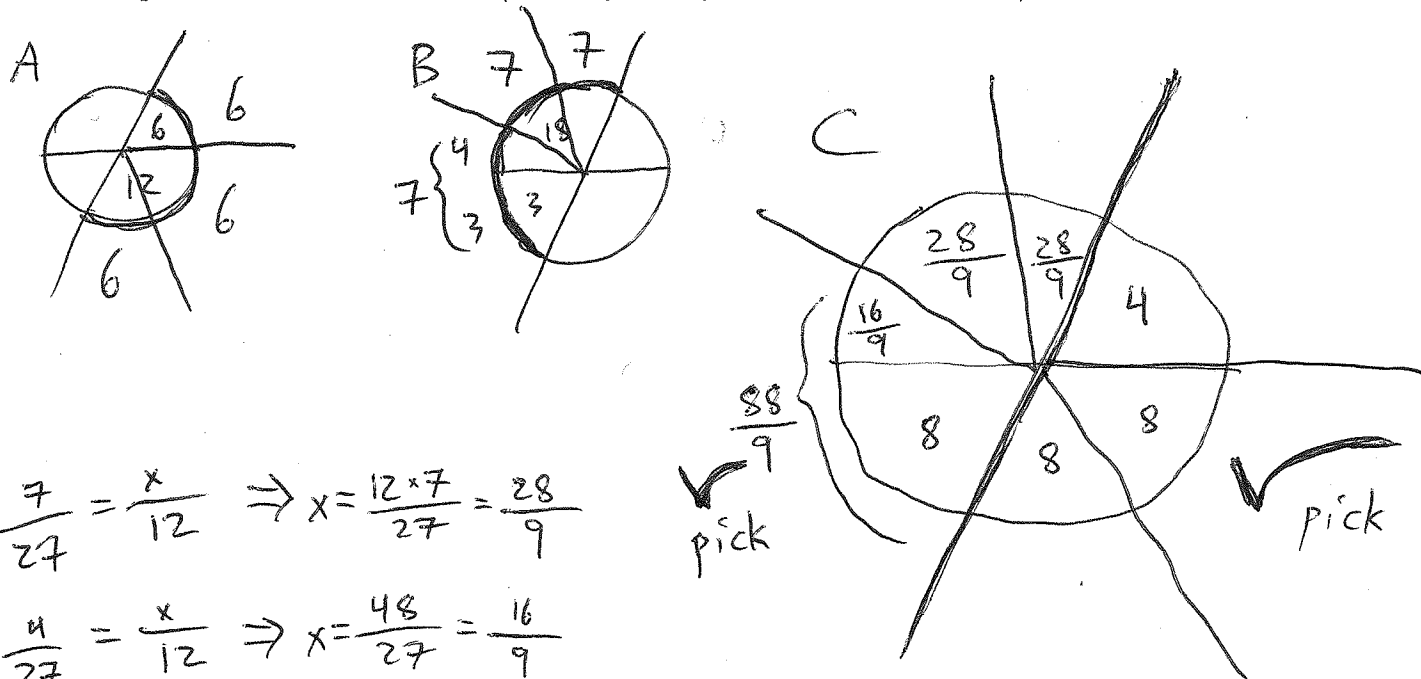 A
6
6
12
6
6
B
7
7
18
4
7
3
3
C
28/9
28/9
4
16/9
88/9
8
8
8
pick
pick
7/27 = x/12 ⇒ x = 12×7/27 = 28/9
4/27 = x/12 ⇒ x = 48/27 = 16/9